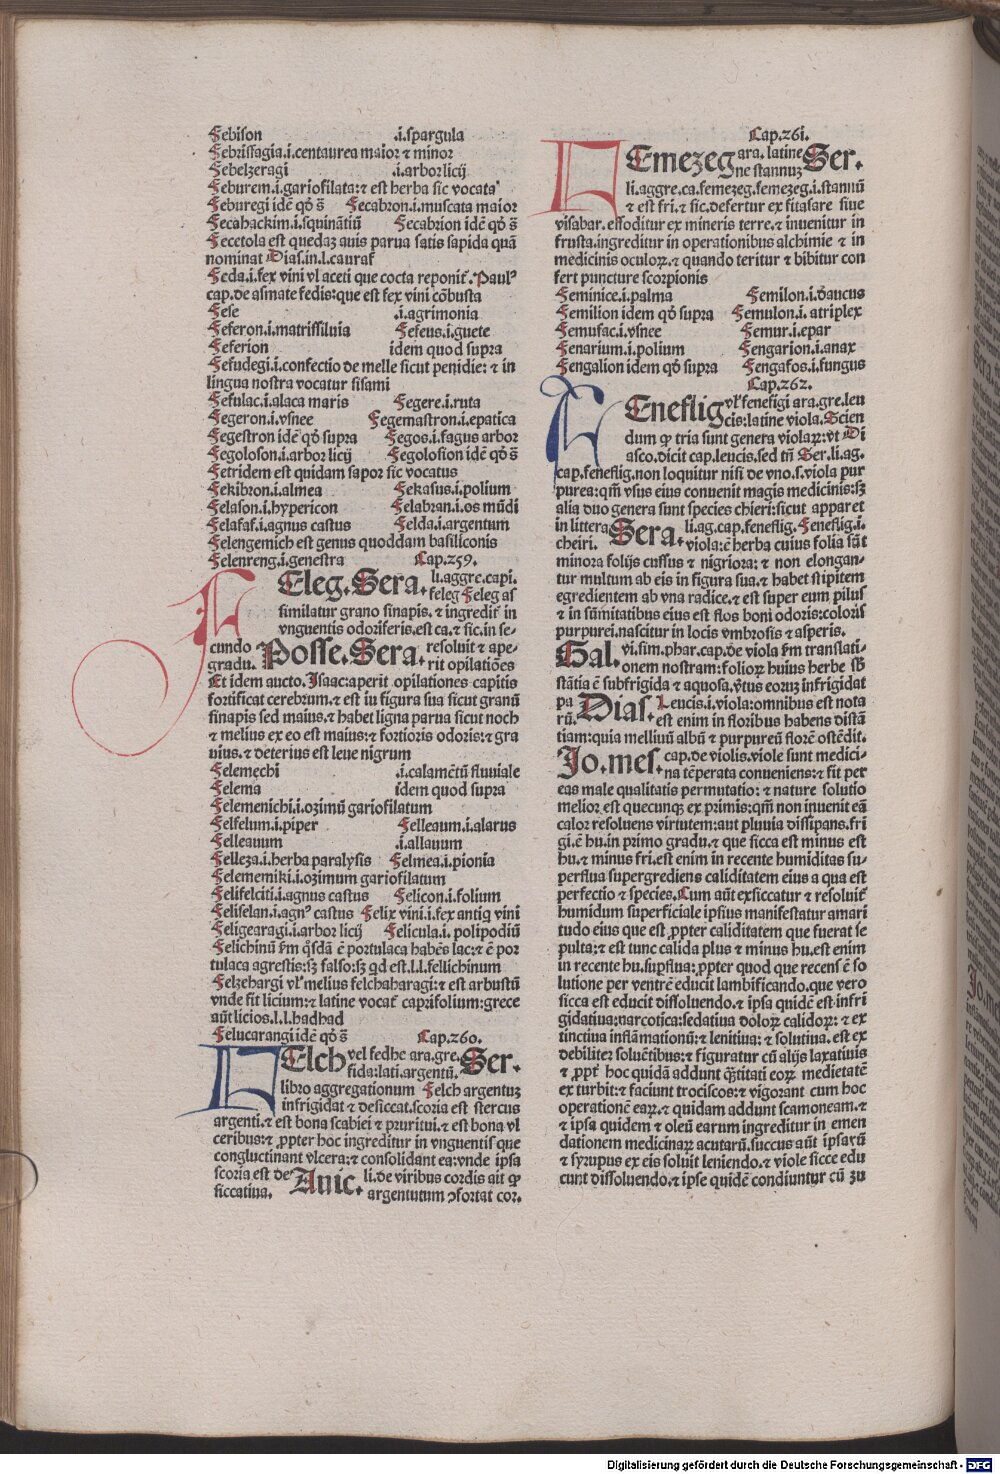 Febison .i.spargula
Febrissagia.i.centaurea maior ⁊ minor
Febelzeragi .i.arbor licij
Feburem.i.gariofilata:⁊ est herba sic vocata
Feburegi idē qd̄ s̄ Fecabron.i.muscata maior
Fecahackim.i.squinātiū Fecabrion idē qd̄ s̄
Fecetola est quedaʒ auis parua satis sapida quā
nominat Dias.in.l.cauraf
Feda.i.fex vini vl̓ aceti que cocta reponit᷑.Paulꝰ
cap.de asmate fedis:que est fex vini cōbusta
Fese .i.agrimonia
Feferon.i.matrissiluia Fefeus.i.guete
Feferion idem quod supra
Fefudegi.i.confectio de melle sicut penidie:⁊ in
lingua nostra vocatur sisami
Fefulac.i.alaca maris Fegere.i.ruta
Fegeron.i.vsnee Fegemastron.i.epatica
Fegestron idē qd̄ supra Fegos.i.fagus arbor
Fegoloson.i.arbor licij Fegolosion idē qd̄ s̄
Fetridem est quidam sapor sic vocatus
Fekibron.i.almea Fekasus.i.polium
Felason.i.hypericon Felabran.i.os mūdi
Felafaf.i.agnus castus Felda.i.argentum
Felengemich est genus quoddam basiliconis
Felenreng.i.genestra Cap.259.
FEleg.Sera. li.aggre.capi.
feleg Feleg as
similatur grano sinapis.⁊ ingredit᷑ in
vnguentis odoriferis.est ca.⁊ sic.in se-
cundo Posse.Sera. resoluit ⁊ ape-
gradu. rit opilatiōes
Et idem aucto.Isaac:aperit opilationes capitis
fortificat cerebrum.⁊ est in figura sua sicut granū
sinapis sed maius.⁊ habet ligna parua sicut noch
⁊ melius ex eo est maius:⁊ fortioris odoris:⁊ gra
uius.⁊ deterius est leue nigrum
Felemechi .i.calamētū fluuiale
Felema idem quod supra
Felemenichi.i.ozimū gariofilatum
Felfelum.i.piper Felleaum.i.alarus
Felleauum .i.allauum
Felleza.i.herba paralysis Felmea.i.pionia
Felememiki.i.ozimum gariofilatum
Felifelciti.i.agnus castus Felicon.i.folium
Feliselan.i.agnꝰ castus Felix vini.i.fex antiq vini
Feligearagi.i.arbor licij Felicula.i. polipodiū
Felichinū fm̄ q̄sdā ē portulaca habēs lac:⁊ ē por
tulaca agrestis:sʒ falso:sʒ qd est.l.l.fellichinum
Felzehargi vl̓ melius felchaharagi:⁊ est arbustū
vnde fit licium:⁊ latine vocat᷑ caprifolium:grece
aūt licios.l.l.hadhad
Felucarangi idē qd̄ s̄ Cap.260.
FElch vel fedhe ara.gre. Ser.
fida:lati.argentū.
libro aggregationum Felch argentuʒ
infrigidat ⁊ desiccat.scoria est stercus
argenti.⁊ est bona scabiei ⁊ pruritui.⁊ est bona vl
ceribus:⁊ ꝓpter hoc ingreditur in vnguentis que
congluctinant vlcera:⁊ consolidant ea:vnde ipsa
scoria est de Auic. li.de viribus cordis ait ꝙ
siccatiua. argentutum ↄfortat cor.
Cap.261.
FEmezeg ara. latine Ser.
ne stannuʒ
li.aggre.ca.femezeg.femezeg.i.stannū
⁊ est fri.⁊ sic.defertur ex fitasare siue
visabar.effoditur ex mineris terre.⁊ inuenitur in
frusta.ingreditur in operationibus alchimie ⁊ in
medicinis oculoꝝ.⁊ quando teritur ⁊ bibitur con
fert puncture scorpionis
Feminice.i.palma Femilon.i.daucus
Femilion idem qd̄ supra Femulon.i. atriplex
Femusac.i.vsnee Femur.i.epar
Fenarium.i.polium Fengarion.i.anax
Fengalion idem qd̄ supra Fengasos.i.fungus
Cap.262.
FEneflig vl̓ fenefigi ara.gre.leu
cis:latine viola.Scien
dum ꝙ tria sunt genera violaꝝ:vt Di
asco.dicit cap.leucis.sed tn̄ Ser.li.ag.
cap.feneflig.non loquitur nisi de vno.s.viola pur
purea:qm̄ vsus eius conuenit magis medicinis:sʒ
alia duo genera sunt species chieri:sicut apparet
in littera Sera. li.ag.cap.feneflig.Feneflig.i.
cheiri. viola:ē herba cuius folia sūt
minora folijs cussus ⁊ nigriora:⁊ non elongan-
tur multum ab eis in figura sua.⁊ habet stipitem
egredientem ab vna radice.⁊ est super eum pilus
⁊ in sūmitatibus eius est flos boni odoris:coloris
purpurei.nascitur in locis vmbrosis ⁊ asperis.
Gal. vi.sim.phar.cap.de viola fm̄ translati-
onem nostram:folioꝝ huius herbe sb̄
stātia ē subfrigida ⁊ aquosa.v̓tus eoruʒ infrigidat
pa Dias. Leucis.i.viola:omnibus est nota
rū. est enim in floribus habens distā
tiam:quia melliuū albū ⁊ purpureū florē ostēdit.
Jo.mes. cap.de violis.viole sunt medici-
na tēperata conueniens:⁊ fit per
eas male qualitatis permutatio: ⁊ nature solutio
melior est quecunqꝫ ex primis:qm̄ non inuenit eā
calor resoluens virtutem:aut pluuia dissipans.fri
gi.ē hu.in primo gradu.⁊ que sicca est minus est
hu.⁊ minus fri.est enim in recente humiditas su-
perflua supergrediens caliditatem eius a qua est
perfectio ⁊ species.Cum aūt exsiccatur ⁊ resoluit᷑
humidum superficiale ipsius manifestatur amari
tudo eius que est ꝓpter caliditatem que fuerat se
pulta:⁊ est tunc calida plus ⁊ minus hu.est enim
in recente hu.supflua:ꝓpter quod que recens ē so
lutione per ventrē educit lambificando.que vero
sicca est educit dissoluendo.⁊ ipsa quidē est infri
gidatiua:narcotica:sedatiua doloꝝ calidoꝝ: ⁊ ex
tinctiua inflāmationū:⁊ lenitiua: ⁊ solutiua. est ex
debiliter soluētibus:⁊ figuratur cū alijs laxatiuis
⁊ ꝓpt᷑ hoc quidā addunt q̄titati eoꝝ medietatē
ex turbit:⁊ faciunt trociscos:⁊ vigorant cum hoc
operationē eaꝝ.⁊ quidam addunt scamoneam.⁊
⁊ ipsa quidem ⁊ oleū earum ingreditur in emen
dationem medicinaꝝ acutarū.succus aūt ipsarū
⁊ syrupus ex eis soluit leniendo.⁊ viole sicce edu
cunt dissoluendo.⁊ ipse quidē condiuntur cū zu
Digitalisierung gefördert durch die Deutsche Forschungsgemeinschaft - DFG